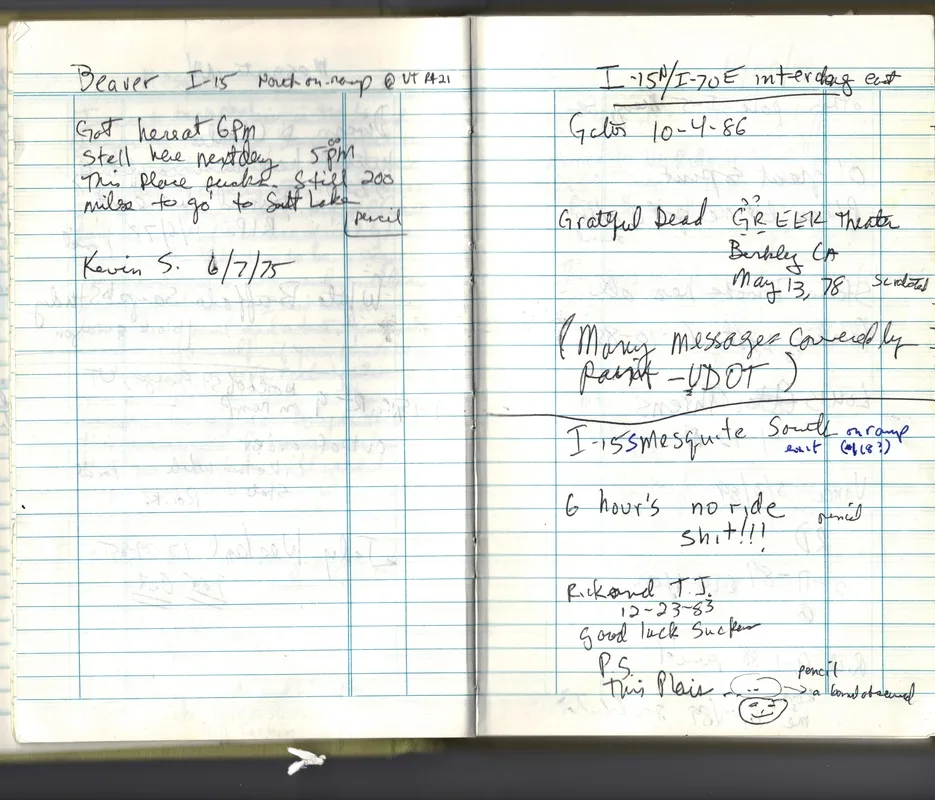 Beaver I-15 North on-ramp @ UT Rt 21
Got here at 6PM
Stell here nextday 5:00 PM
This Place sucks. Still 200
milse to go to Salt Lake
pencil
Kevin S. 6/7/75
I-15N/I-70E interchag east
Gator 10-4-86
Grateful Dead GREEK Theater
Berkley CA
May 13, 78 scratched
(Many messages covered by
paint - UDOT)
I-15S Mesquite South on ramp
exit
6 hour's no ride
pencil
shit!!!
Rick and T.J.
12-23-83
good luck Sucker
P.S.
pencil
This Plais